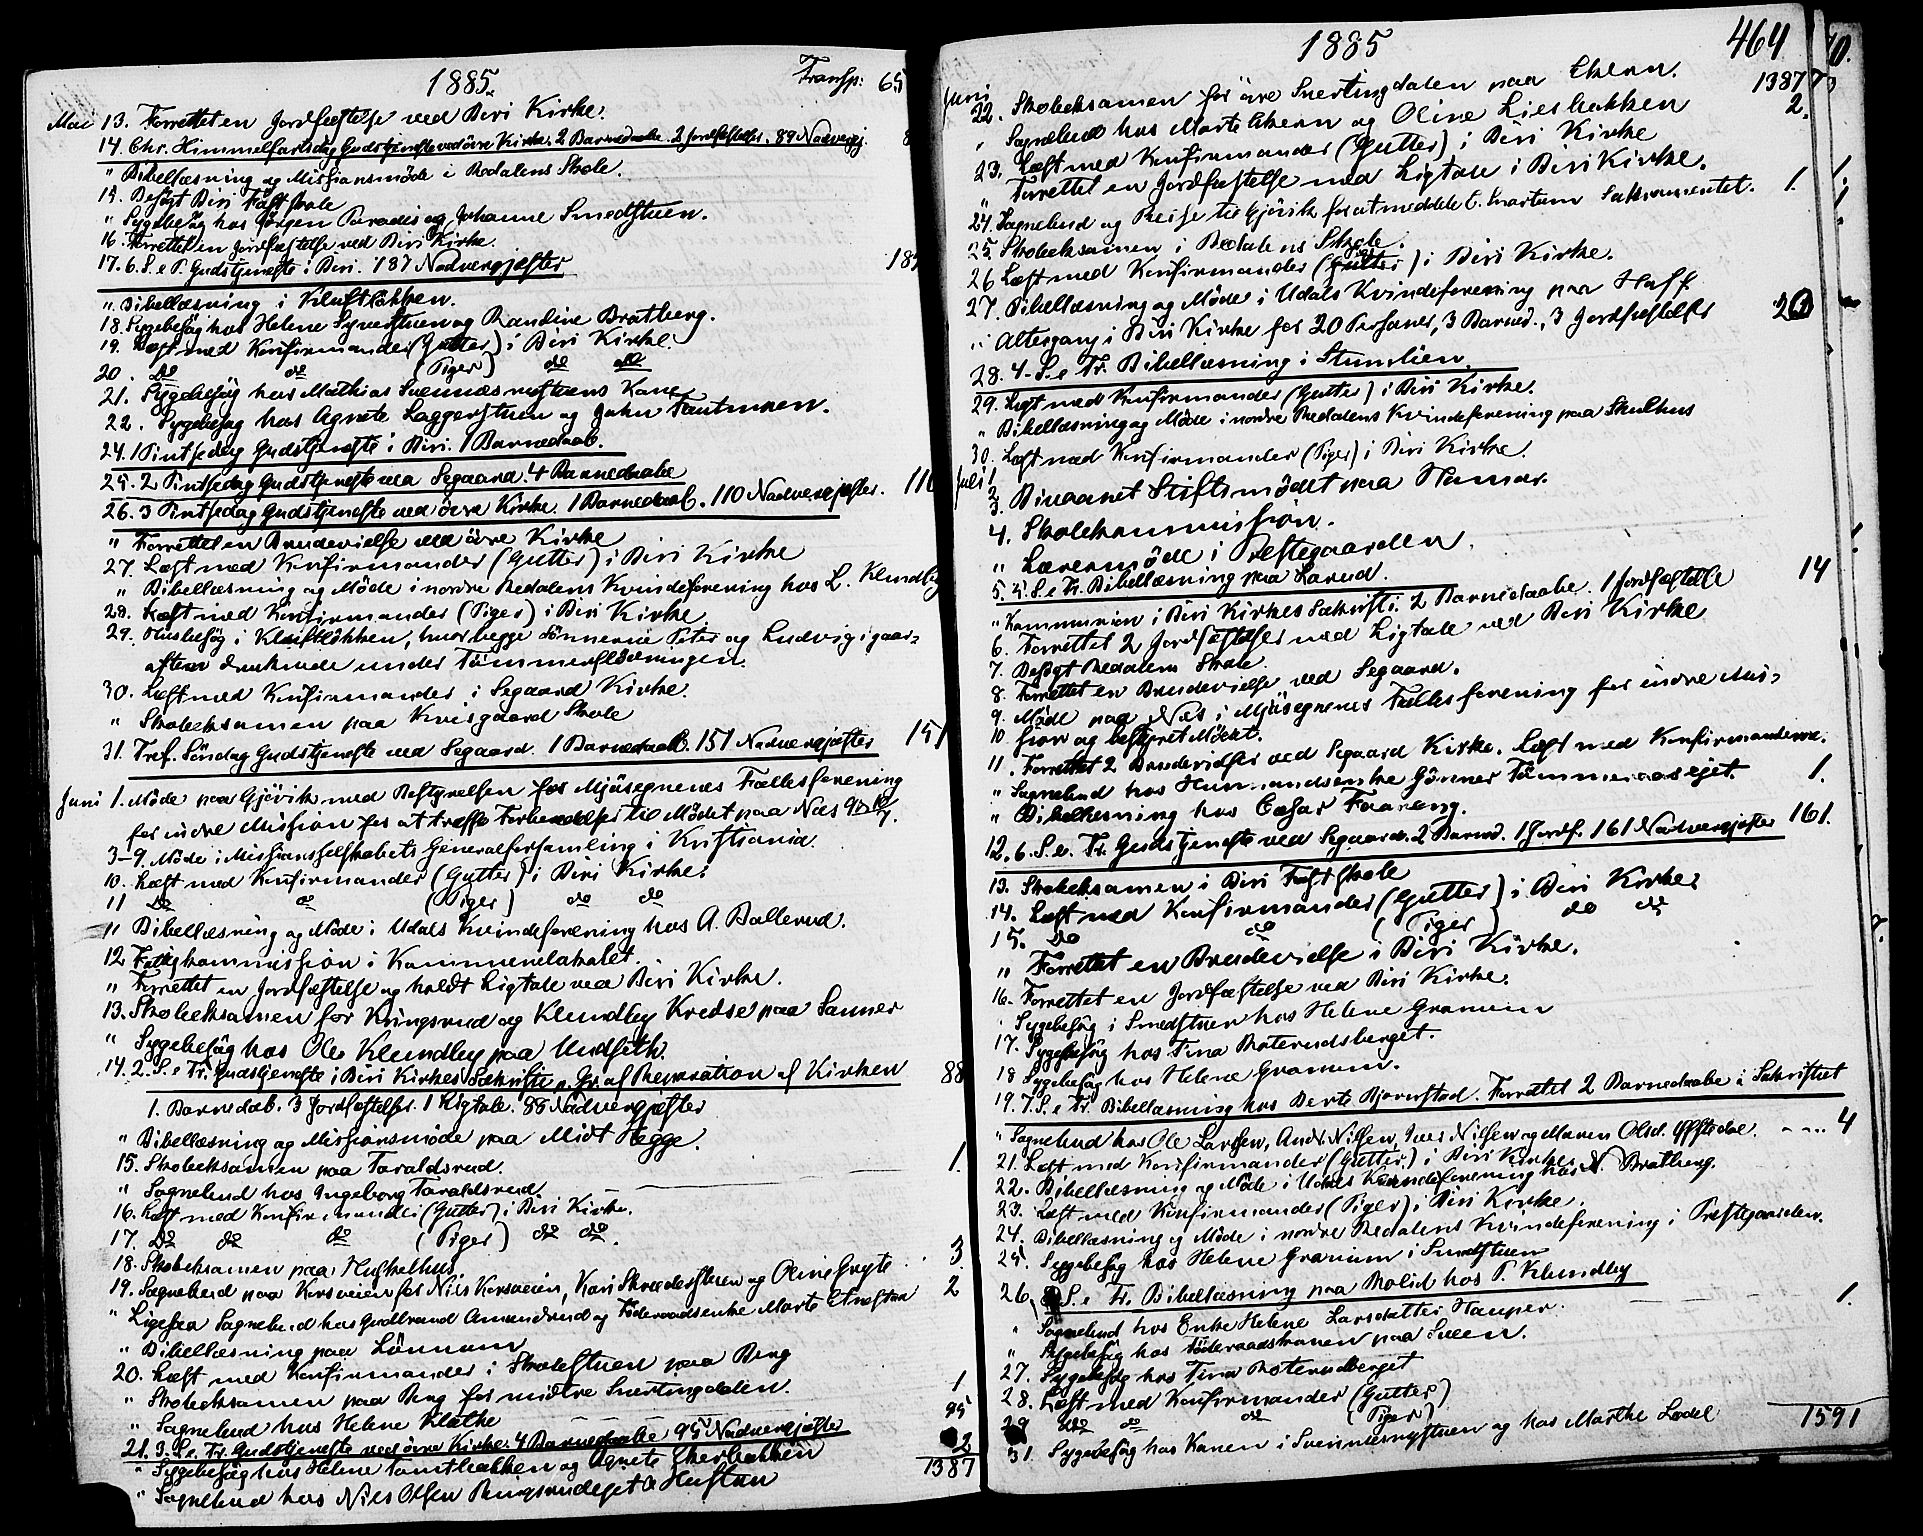 1885. Transp: 65
Mai 13. Forrettet en Jordfæstelse ved Biri Kirke.
14. Chr. Himmelfartsdag Gudstjeneste ved övre Kirke. 2 Barnedaabe. 2 Jordfæstelser. 89 Nadvergj. 8
" Bibellæsning og Missionsmöde i Redalens Skole.
15. Besögt Biri Fastskole
" Sygebesög hos Jörgen Paradis og Johanne Smedstuen.
16. Forrettet en Jordfæstelse ved Biri Kirke.
17. 6. S. e P. Gudstjeneste i Biri. 187 Nadvergjæster 187
" Bibellæsning i Kluftlökken.
18. Sygebesög hos Helene Syverstuen og Randine Bratberg.
19. Læst med Konfirmander (Gutter) i Biri Kirke.
20. Do do (Piger) do do
21. Sygebesög hos Mathias Svennæsnystuens Kone
22. Sygebesög hos Agnete Laggerstuen og John Tautmoen.
24. 1 Pintsedag Gudstjeneste i Biri. 1 Barnedaab.
25. 2 Pintsedag Gudstjeneste ved Segaard. 4 Barnedaabe
26. 3 Pintsedag Gudstjeneste ved övre Kirke. 1 Barnedaab. 110 Nadvergjæster. 110
" Forrettet en Brudevielse ved övre Kirke
27. Læst med Konfirmander (Gutter) i Biri Kirke
" Bibellæsning og Möde i nordre Redalens Kvindeforening hos L. Klundby
28. Læst med Konfirmander (Piger) i Biri Kirke
29. Husbesög i Kluftlökken, hvor begge Sönnerne Peter og Ludvig igaar-
aftes druknede under Tömmerflödningen.
30. Læst med Konfirmander i Segaard Kirke.
" Skoleeksamen paa Kvisgaard Skole
31. Tref. Söndag Gudstjeneste ved Segaard. 1 Barnedaab. 151 Nadvergjæster 151
Juni 1. Möde paa Gjövik med Bestyrelsen for Mjösegnenes Fællesforening
for indre Mission for at træffe Forberedelser til Mödet paa Næs 9 & 10/7.
3-9. Möde i Missionsselskabets Generalforsamling i Kristiania.
10. Læst med Konfirmander (Gutter) i Biri Kirke.
11 Do do (Piger) do do
11 Bibellæsning og Möde i Udals Kvindeforening hos A. Ballerud.
12 Fattigkommission i Kommunelokalet.
" Forrettet en Jordfæstelse og holdt Ligtale ved Biri Kirke.
13. Skoleeksamen for Kringsrud og Klundby Kredse paa Sanner
" Sygebesög hos Ole Klundby paa Undseth.
14. 2. S. e Tr. Gudstjeneste i Biri Kirkes Sakristi p. Gr. af Reparation af Kirken 88
1. Barnedaab. 3 Jordfæstelser. 1 Ligtale. 88 Nadvergjæster
" Bibellæsning og Missionsmöde paa Midt Hegge.
15. Skoleeksamen paa Taraldsrud. 1.
" Sognebud hos Ingeborg Taraldsrud.
16. Læst med Konfirmander (Gutter) i Biri Kirke.
17. Do do do (Piger) do do.
18. Skoleeksamen paa Huskelhus.
19. Sognebud paa Korsveien for Nils Korsveien, Kari Skrædderstuen og Oline Gryte 3
" Ligesaa Sognebud hos Gudbrand Amundrud og Föderaadsenke Marte Enestuen 2
" Bibellæsning paa Lönnum
20. Læst med Konfirmander i Skolestuen paa Berg
" Skoleeksamen paa Berg for midtre Snertingdalen.
" Sognebud hos Helene Kløthe 1
21. 3. S. e. Tr. Gudstjeneste ved övre Kirke. 4 Barnedaabe 95 Nadvergjæster 95
" Sygebesög hos Helene Tomtbakken og Agnete Ekerbakken
" Sognebud hos Nils Olsen Bergsrudejet & Hustru 2
1387

1885 464
Juni
22. Skoleeksamen for övre Snertingdalen paa Ekern. 1387
" Sognebud hos Marte Ekern og Oline Liesbakken 2.
23. Læst med Konfirmander (Gutter) i Biri Kirke
" Forrettet en Jordfæstelse med Ligtale i Biri Kirke.
24. Sognebud og Reise til Gjövik for at meddele C. Sakramentet. 1.
25. Skoleeksamen i Redalens Skole.
26 Læst med Konfirmander (Gutter) i Biri Kirke.
27. Bibellæsning og Möde i Udals Kvindeforening paa Hoff.
" Altergang i Biri Kirke for 20 Personer, 3 Barned., 3 Jordfæstelser 20
28. 4. S. e Tr. Bibellæsning i Stumlien
29. Læst med Konfirmander (Gutter) i Biri Kirke.
" Bibellæsning og Möde i nordre Redalens Kvindeforening paa Skulhus
30. Læst med Konfirmander (Piger) i Biri Kirke.
Juli 1
2
3. Bivaanet Stiftsmödet paa Hamar.
4. Skolekommission.
" Lærermöde i Præstegaarden.
5. 5. S. e Tr. Bibellæsning paa Larud.
" Kommunion i Biri Kirkes Sakristi. 2 Barnedaabe. 1 Jordfæstelse 14
6. Forrettet 2 Jordfæstelser med Ligtale ved Biri Kirke
7. Besögt Redalens Skole.
8. Forrettet en Brudevielse ved Segaard.
9. Möde paa Næs i Mjösegnenes Fællesforening for indre Mis-
10 sion og bestyret Mödet.
11. Forrettet 2 Brudevielser ved Segaard Kirke. Læst med Konfirmanderne.
" Sognebud hos Husmandsenke Gönner Tömmeraasejet. 1.
" Bibellæsning hos Cæsar Faareng.
12. 6. S. e. Tr. Gudstjeneste ved Segaard. 2 Barned. 1 Jordf. 161 Nadvergjæster 161.
13. Skoleeksamen i Biri Fastskole
14. Læst med Konfirmander (Gutter) i Biri Kirke
15. Do do (Piger) do do
" Forrettet en Brudevielse i Biri Kirke.
16. Forrettet en Jordfæstelse ved Biri Kirke.
Sygebesög i Smedstuen hos Helene Granum
17. Sygebesög hos Tina Roterudsberget.
18 Sygebesög hos Helene Granum.
19. 7. S. e Tr. Bibellæsning hos Berte Bjørnstad. Forrettet 2 Barnedaabe i Sakristiet
" Sognebud hos Ole Larsen, Andr. Nilsen, Iver Nilsen og Maren Olsd. Öfstedal. 4
21. Læst med Konfirmander (Gutter) i Biri Kirke
22. Bibellæsning og Möde i Udals Kvindeforening hos N. Bratberg.
23. Læst med Konfirmander (Piger) i Biri Kirke.
24. Bibellæsning og Möde i nordre Redalens Kvindeforening i Præstegaarden.
25. Sygebesög hos Helene Granum i Smedstuen
26. 8 S. e Tr. Bibellæsning paa Molid hos P. Klundby
" Sognebud hos Enke Helene Larsdatter Hauger. 1.
" Sygebesög hos Föderaadskonen paa Sveen.
27. Sygebesög hos Tina Roterudberget
28. Læst med Konfirmander (Gutter)
29 Do do do (Piger)
31. Sygebesög hos Konen i Svennesnystuen og hos Marthe Lodel 1591